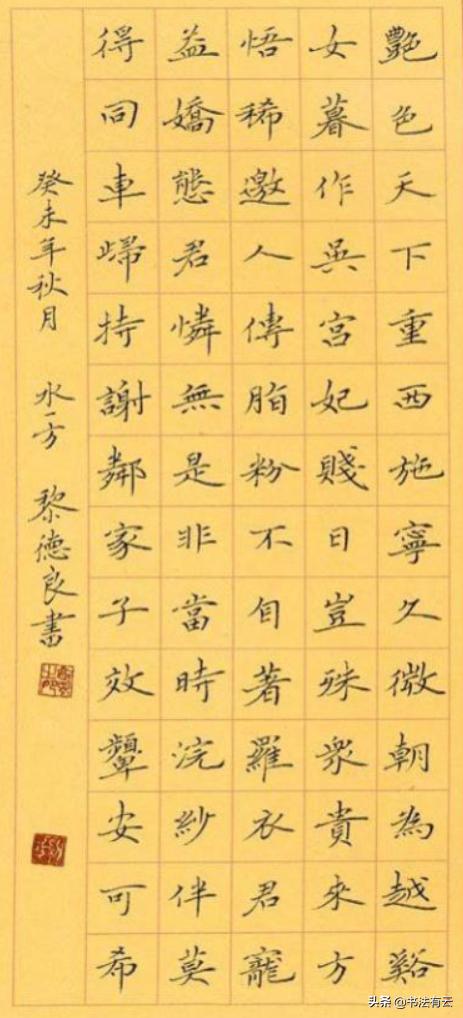 艷色天下重西施寧久微朝為越谿
女暮作吳宮妃賤日豈殊衆貴來方
悟稀邀人傅脂粉不自著羅衣君寵
益嬌態君憐無是非當時浣紗伴莫
得同車歸持謝鄰家子效顰安可希
癸未年秋月 水一方 黎德良書
头条 @书法有云